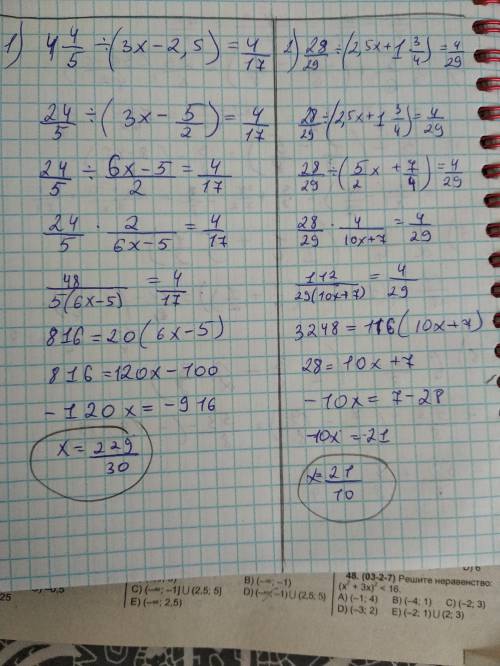 1) 4 4/5 ÷ (3x − 2,5) = 4/17
24/5 ÷ (3x − 5/2) = 4/17
24/5 ÷ (6x−5)/2 = 4/17
24/5 · 2/(6x−5) = 4/17
48/(5(6x−5)) = 4/17
816 = 20(6x−5)
816 = 120x − 100
−120x = −916
x = 229/30
2) 28/29 ÷ (2,5x + 1 3/4) = 4/29
28/29 ÷ (2,5x + 1 3/4) = 4/29
28/29 ÷ (5/2 x + 7/4) = 4/29
28/29 · 4/(10x+7) = 4/29
112/(29(10x+7)) = 4/29
3248 = 116(10x+7)
28 = 10x + 7
−10x = 7 − 28
−10x = −21
x = 21/10
25
C) (−∞; −1] U (2,5; 5]
E) (−∞; 2,5)
B) (−∞; −1)
D) (−∞; −1) U (2,5; 5]
D) 6
48. (03-2-7) Решите неравенство:
(x² + 3x)² < 16.
A) (−1; 4) B) (−4; 1) C) (−2; 3)
D) (−3; 2) E) (−2; 1) U (2; 3)